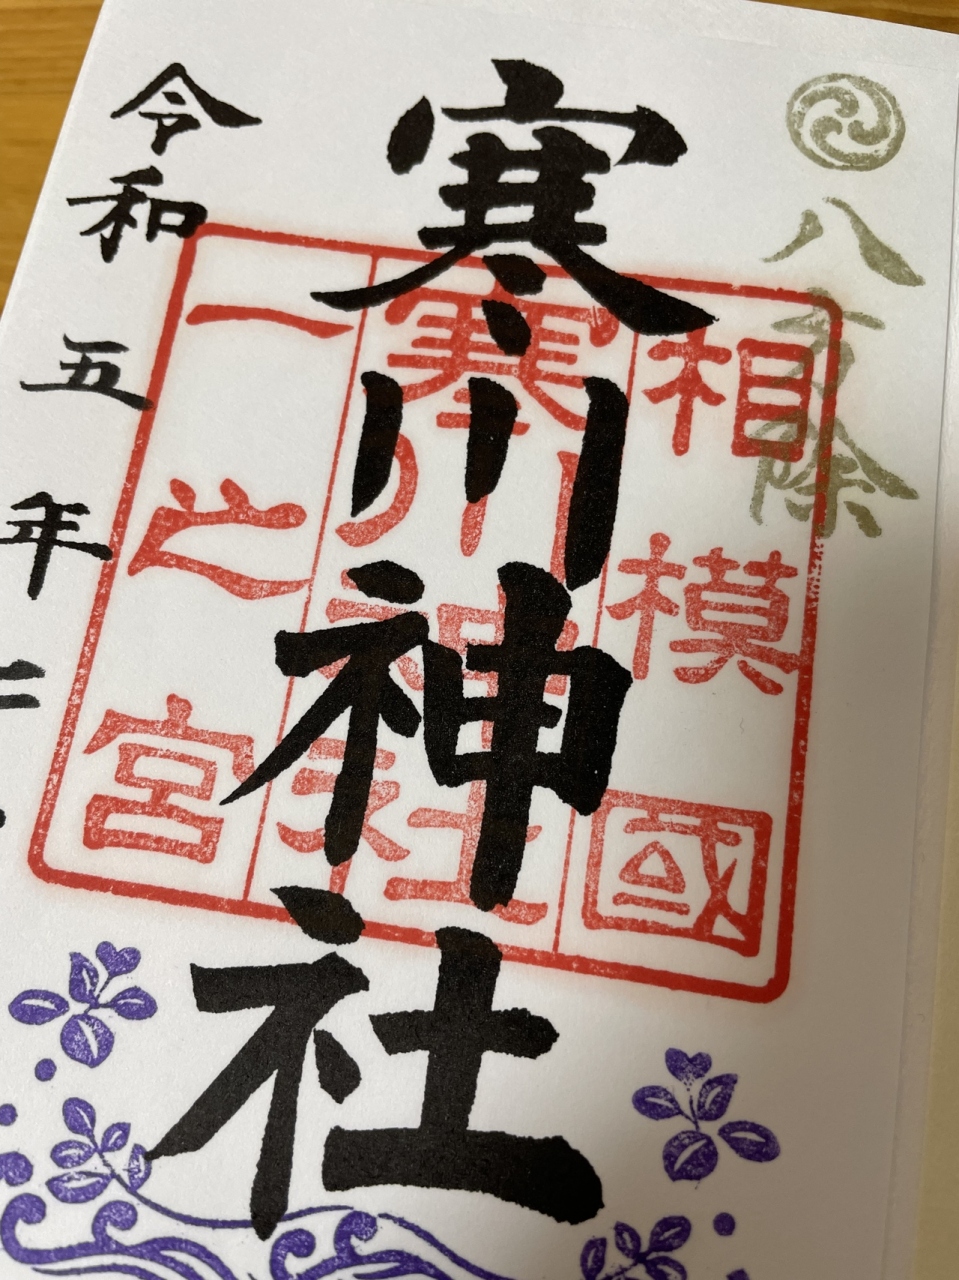 八方除
寒川神社
相模國
寒川神社
一之宮
令和五年二